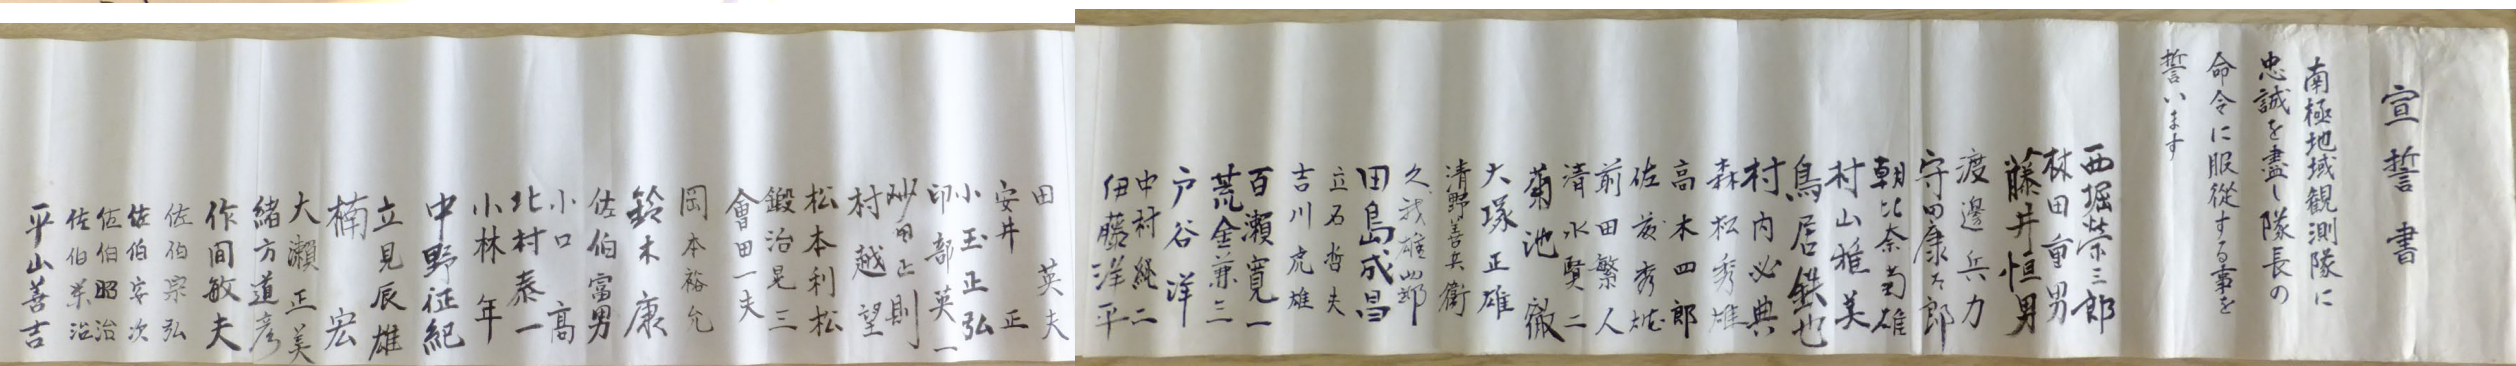 宣誓書
南極地域観測隊に
忠誠を盡し隊長の
命令に服従する事を
誓います
西堀榮三郎
林田重男
藤井恒男
渡邊兵力
守田康太郎
朝比奈菊雄
村山雅美
鳥居鉄也
村内必典
森松秀雄
高木四郎
佐藤秀雄
前田繁人
清水賢二
菊池徹
大塚正雄
清野善兵衛
久我雄四郎
田島成昌
立石哲夫
吉川虎雄
百瀬寛一
荒金兼三
戸谷洋
中村純二
伊藤洋平
田英夫
安井正
小玉正弘
印部英一
砂田正則
村越望
松本利松
鍛治晃三
會田一夫
岡本裕允
鈴木康
佐伯富男
小口高
北村泰一
小林年
中野征紀
立見辰雄
楠宏
大瀬正美
緒方道彦
作間敏夫
佐伯宗弘
佐伯安次
佐伯昭治
佐伯栄治
平山善吉